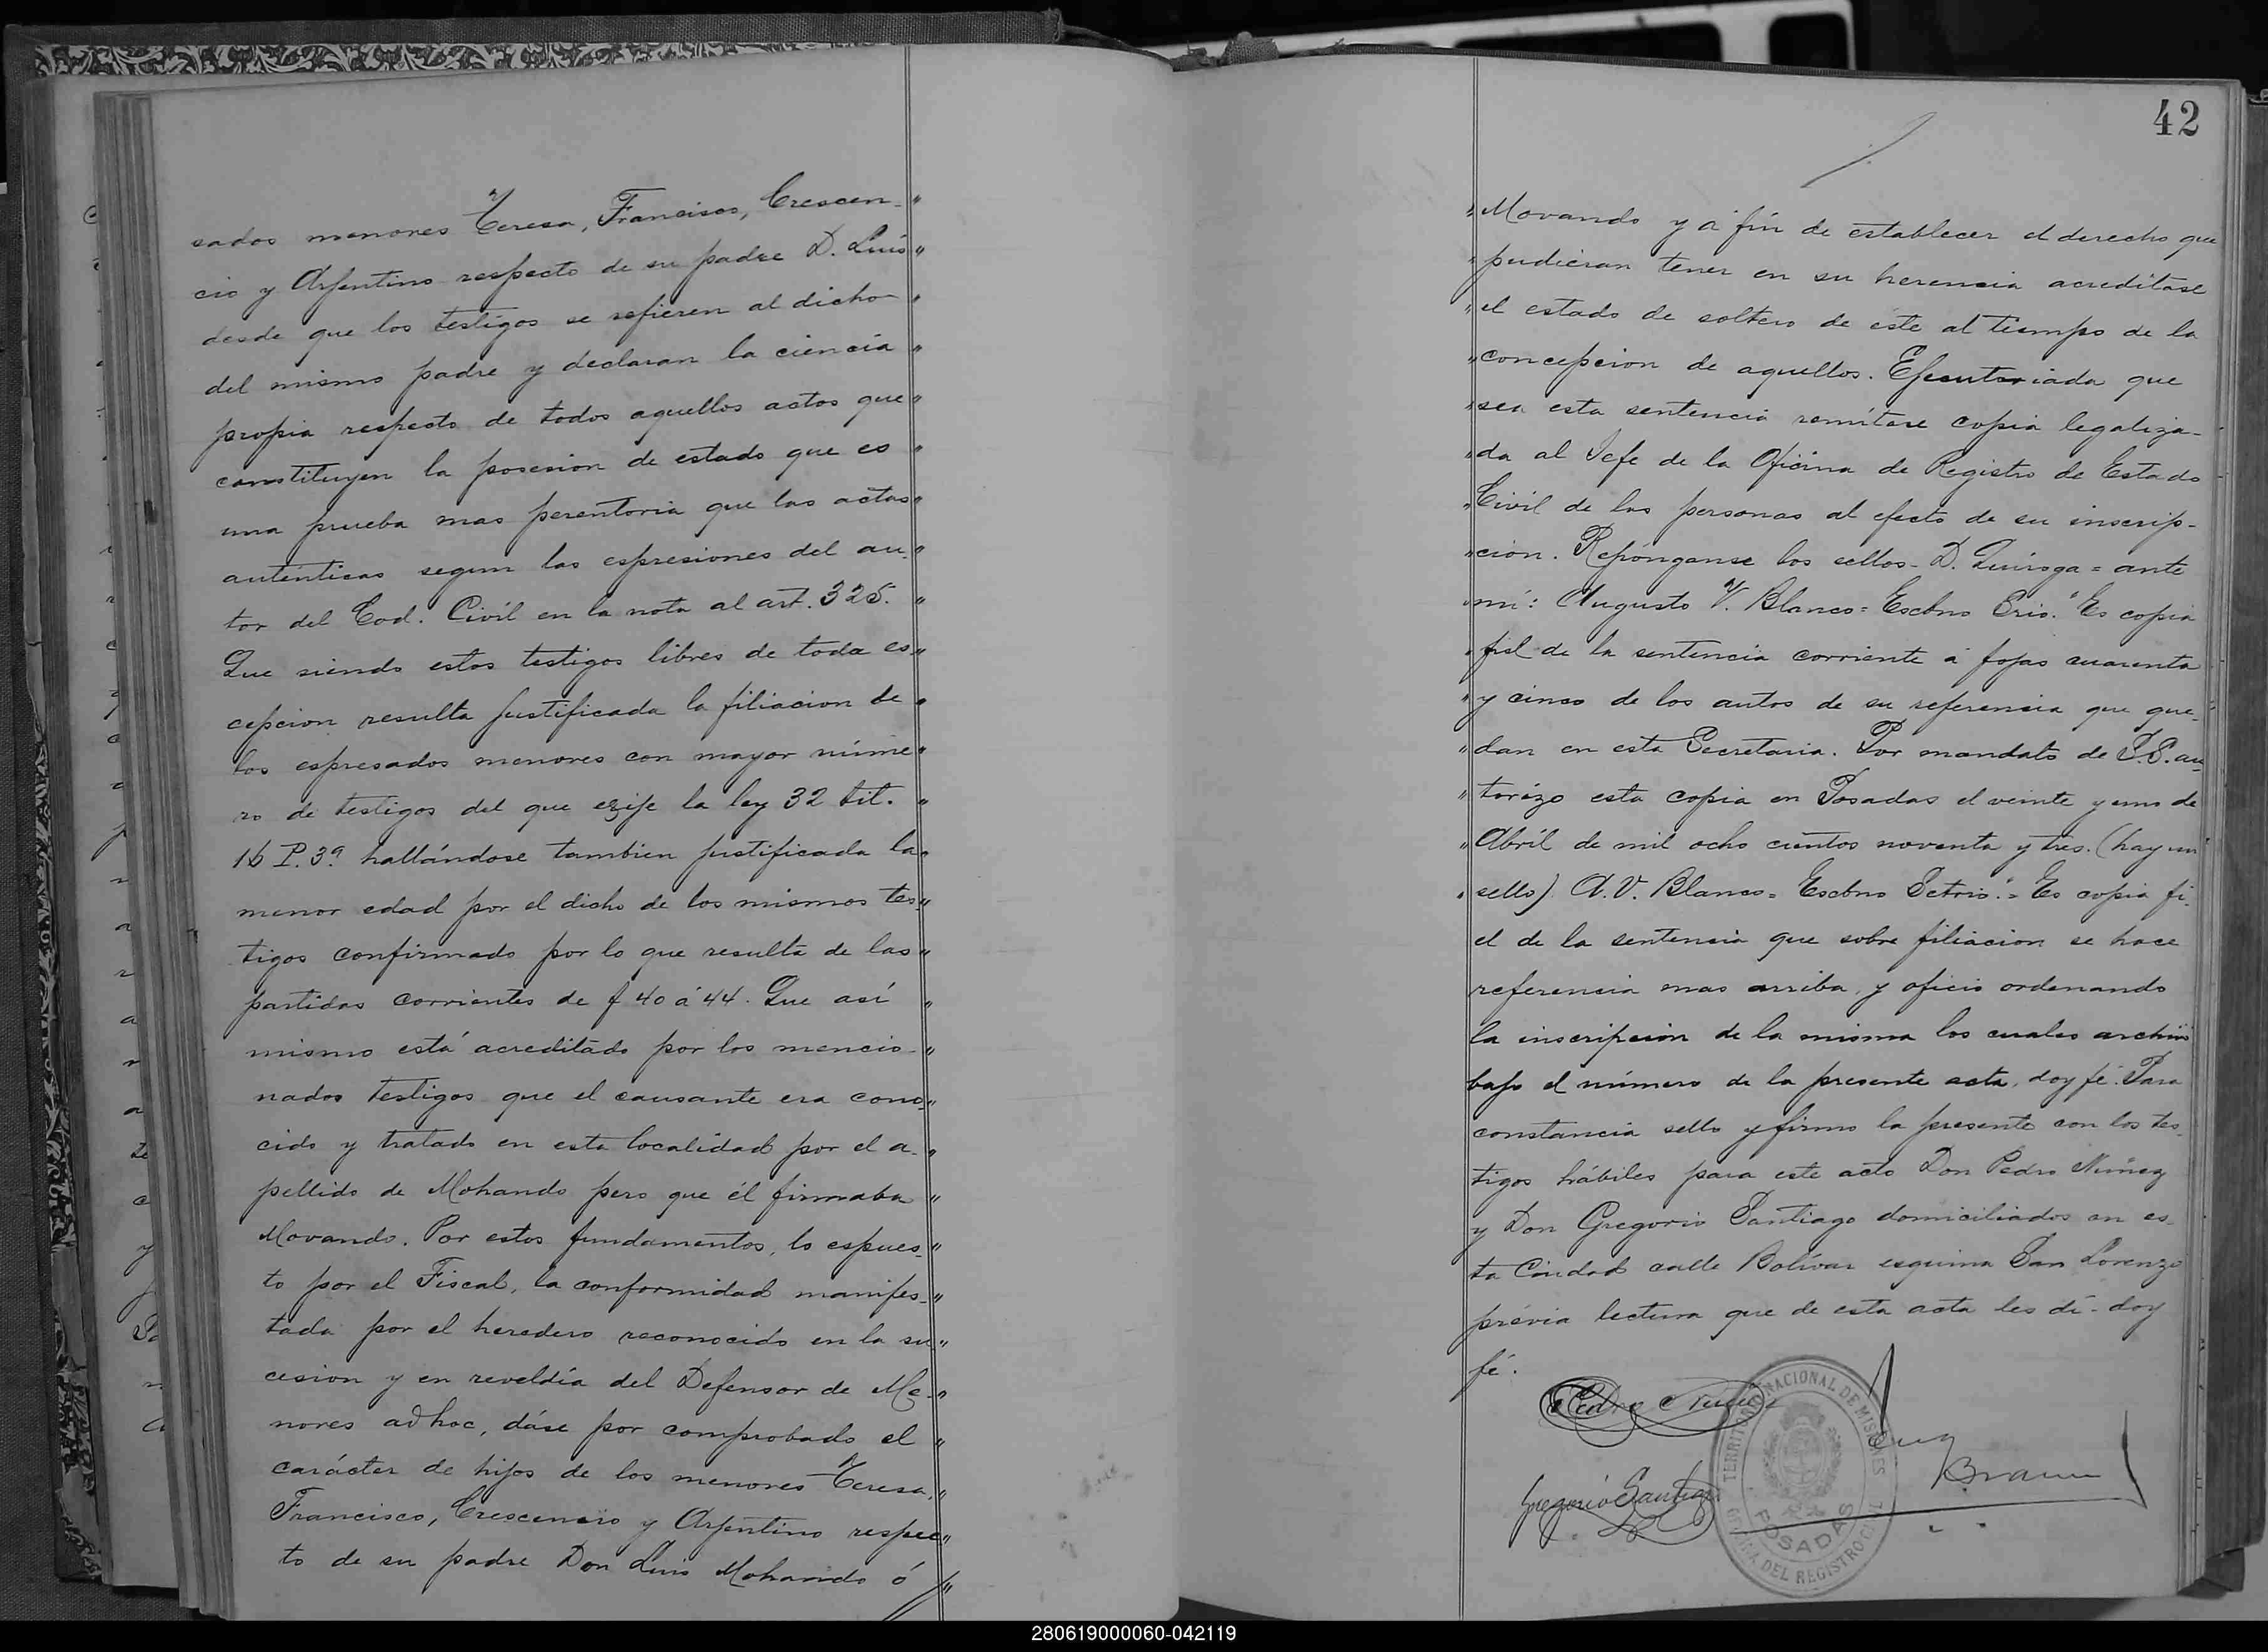 sados menores Teresa, Francisco, Crescen- "
cio y Arjentino respecto de su padre D. Luis "
desde que los testigos se refieren al dicho "
del mismo padre y declaran la ciencia "
propia respecto de todos aquellos actos que "
constituyen la posesion de estado que es "
una prueba mas perentoria que las actas "
auténticas segun las espresiones del au- "
tor del Cod. Civil en la nota al art. 325. "
Que siendo estos testigos libres de toda es- "
cepcion resulta justificada la filiacion de "
los espresados menores con mayor núme "
ro de testigos del que exije la ley 32 tit. "
16 P. 3ª hallándose tambien justificada la "
menor edad por el dicho de los mismos tes- "
tigos confirmado por lo que resulta de las "
partidas corrientes de f 40 á 44. Que así "
mismo está acreditado por los mencio- "
nados testigos que el causante era cono- "
cido y tratado en esta localidad por el a- "
pellido de Mohando pero que él firmaba "
Movando. Por estos fundamentos, lo espues- "
to por el Fiscal, la conformidad manifes- "
tada por el heredero reconocido en la su- "
cesion y en reveldía del Defensor de Me- "
nores ad hoc, dáse por comprobado el "
carácter de hijos de los menores Teresa, "
Francisco, Crescencio y Arjentino respec "
to de su padre Don Luis Mohando ó "
42
" Movando y á fin de establecer el derecho que
" pudieran tener en su herencia acreditase
" el estado de soltero de éste al tiempo de la
" concepcion de aquellos. Ejecutoriada que
" sea esta sentencia remítase copia legaliza-
" da al Jefe de la Oficina de Registro de Estado
" Civil de las personas al efecto de su inscrip-
" cion. Repónganse los sellos - D. Quiroga = ante
" mí: Augusto V. Blanco = Escbno Srio." Es copia
" fiel de la sentencia corriente á fojas cuarenta
" y cinco de los autos de su referencia que que-
" dan en esta Secretaria. Por mandato de S.S. au-
" torizo esta copia en Posadas el veinte y uno de
" Abril de mil ocho cientos noventa y tres. (hay un
" sello) A. V. Blanco = Escbno Setrio." = Es copia fi-
el de la sentencia que sobre filiacion se hace
referencia mas arriba, y oficio ordenando
la inscripcion de la misma los cuales archivo
bajo el número de la presente acta, doy fé. Para
constancia sello y firmo la presente con los tes-
tigos hábiles para este acto Don Pedro Nuñez
y Don Gregorio Santiago domiciliados en es-
ta Ciudad calle Bolívar esquina San Lorenzo
prévia lectura que de esta acta les dí - doy
fé.
Pedro Nuñez
TERRITORIO NACIONAL DE MISIONES
POSADAS
OFICINA DEL REGISTRO CIVIL
Braun
Gregorio Santiago
280619000060-042119